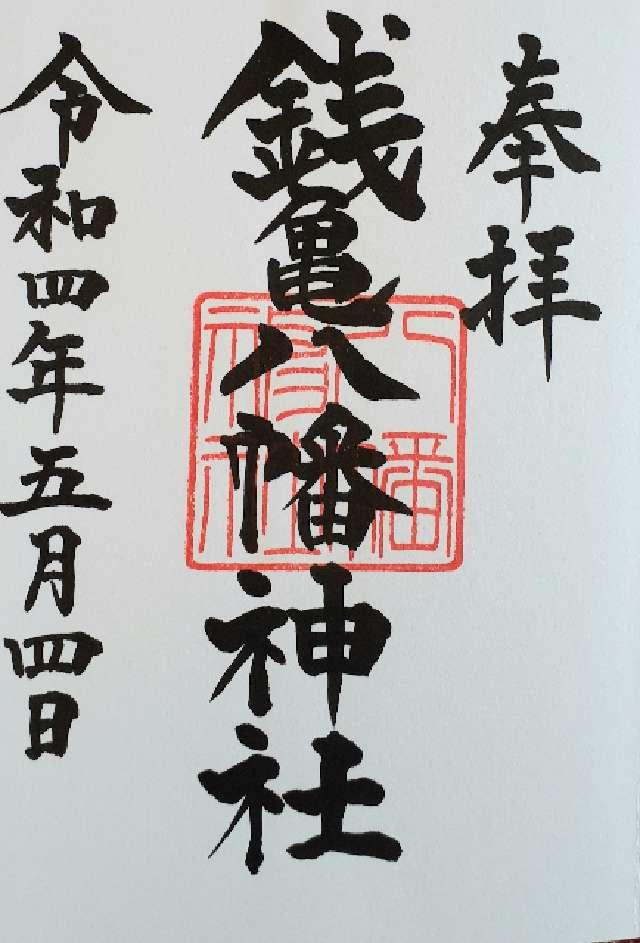 奉拝
銭亀八幡神社
八幡
神社
令和四年五月四日